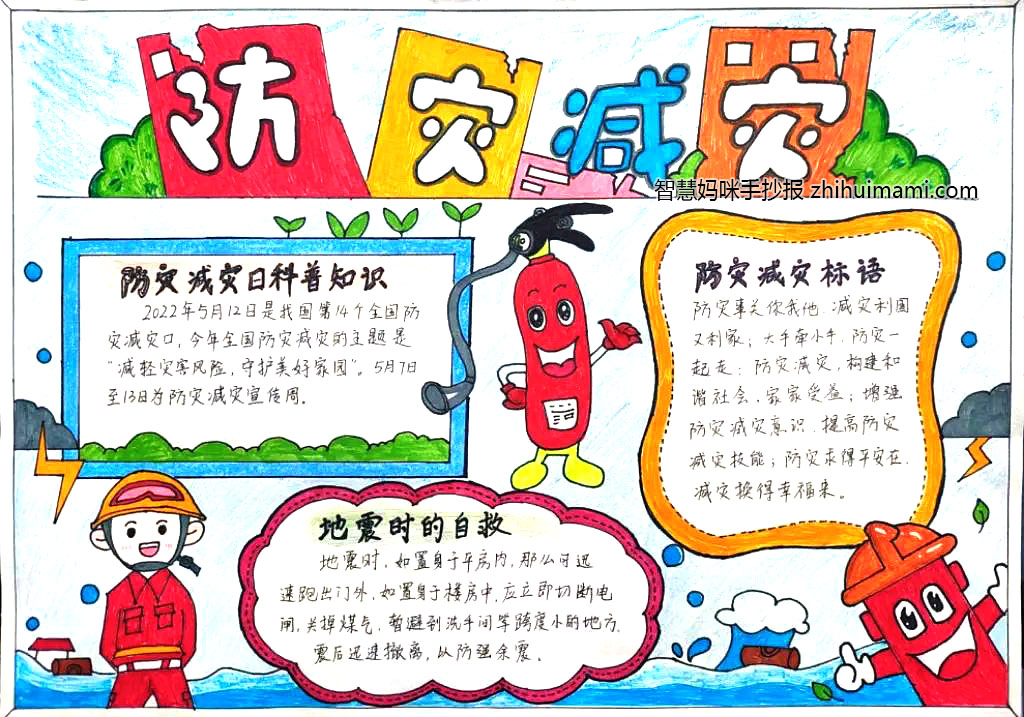 防灾减灾
智慧妈咪手抄报 zhihuimami.com
防灾减灾日科普知识
2022年5月12日是我国第14个全国防
灾减灾口,今年全国防灾减灾的主题是
“减轻灾害风险,守护美好家园”。5月7日
至13日为防灾减灾宣传周。
防灾减灾标语
防灾事关你我他.减灾利国
又利家;大手牵小手,防灾一
起走;防灾减灾,构建和
谐社会、家家受益;增强
防灾减灾意识.提高防灾
减灾技能;防灾求得平安在.
减灾换得幸福来。
地震时的自救
地震时,如置身于平房内,那么可迅
速跑出门外,如置身于楼房中,应立即切断电
闸,关掉煤气,暂避到洗手间等跨度小的地方.
震后迅速撤离,以防强余震。